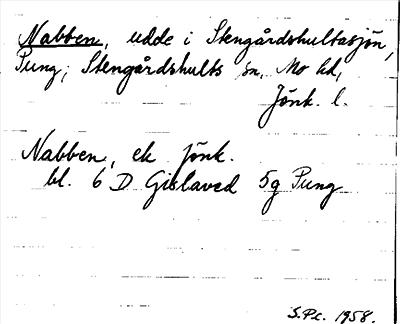 Nabben, udde i Stengårdshultasjön,
Pung, Stengårdshults sn, Mo hd,
Jönk. l.
Nabben, ek Jönk.
bl. 6 D Gislaved 5g Pung
S.Pc. 1958.